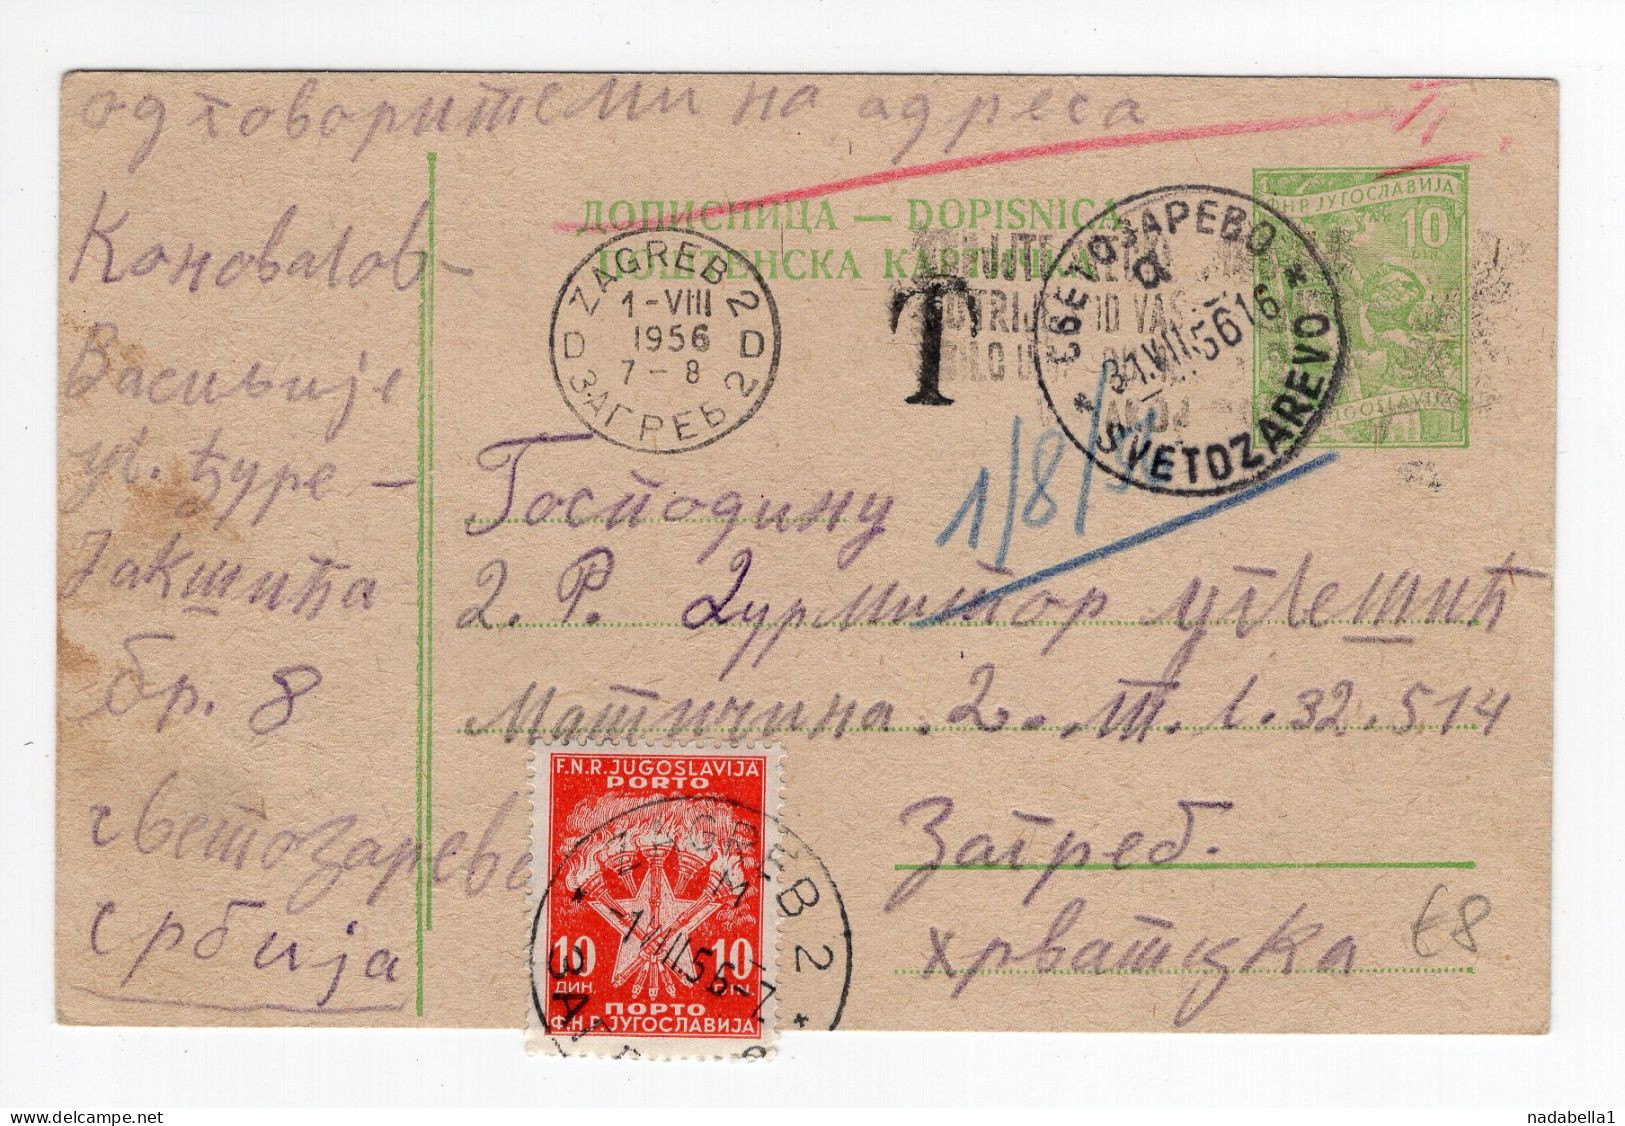 одховорители на адреса
Коновалов-
Василије
ул. Ђуре -
Јакшића
бр. 8
Светозарево
Србија
ДОПИСНИЦА — DOPISNICA
ПОШТЕНСКА КАРТИЧКА
Ф.Н.Р. ЈУГОСЛАВИЈА
10
DIN
JUGOSLAVIJA
ZAGREB 2
1-VIII
1956
7-8
D D
ЗАГРЕБ 2
T
СВЕТОЗАРЕВО
a
31.VII.56 16
SVETOZAREVO
1/8/56
Господину
2. Р. Дурмитор
Матична. 2. т. 1. 32.514
Загреб.
Хрватцка
€8
F.N.R. JUGOSLAVIJA
PORTO
10 10
ДИН. DIN.
ПОРТО
Ф.Н.Р. ЈУГОСЛАВИЈА
ZAGREB 2
M
-1.VIII.56-7
delcampe.net
nadabella1